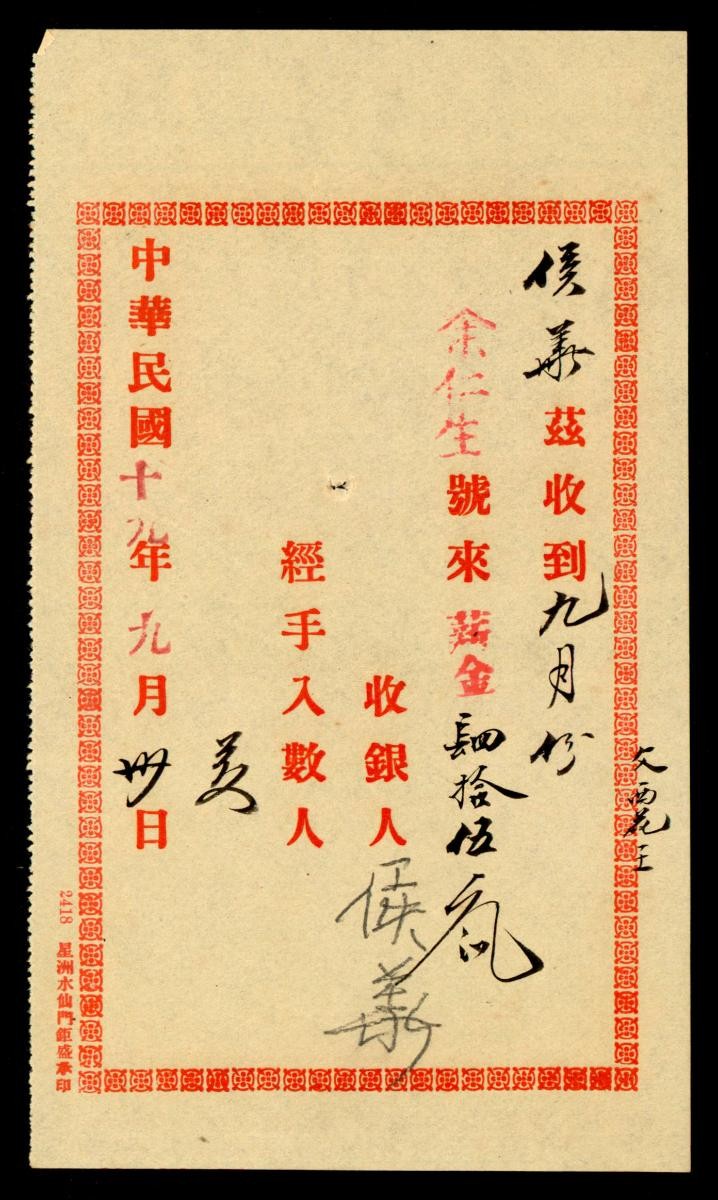 侯華茲收到九月份
余仁生號來薪金肆拾伍元
收銀人侯華
經手入數人
中華民國十九年九月卅日
2418 星洲水仙門鉅盛承印